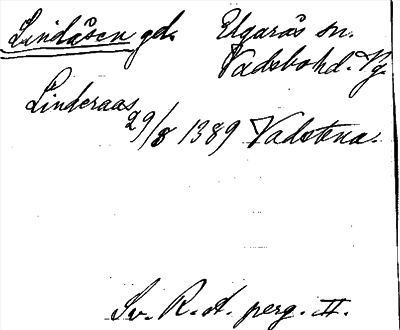 Lindåsen gd. Elgarås sn.
Vadsbo hd. Vg.
Linderaas
29/8 1389 Vadstena.
Sv. R.A. perg. II.